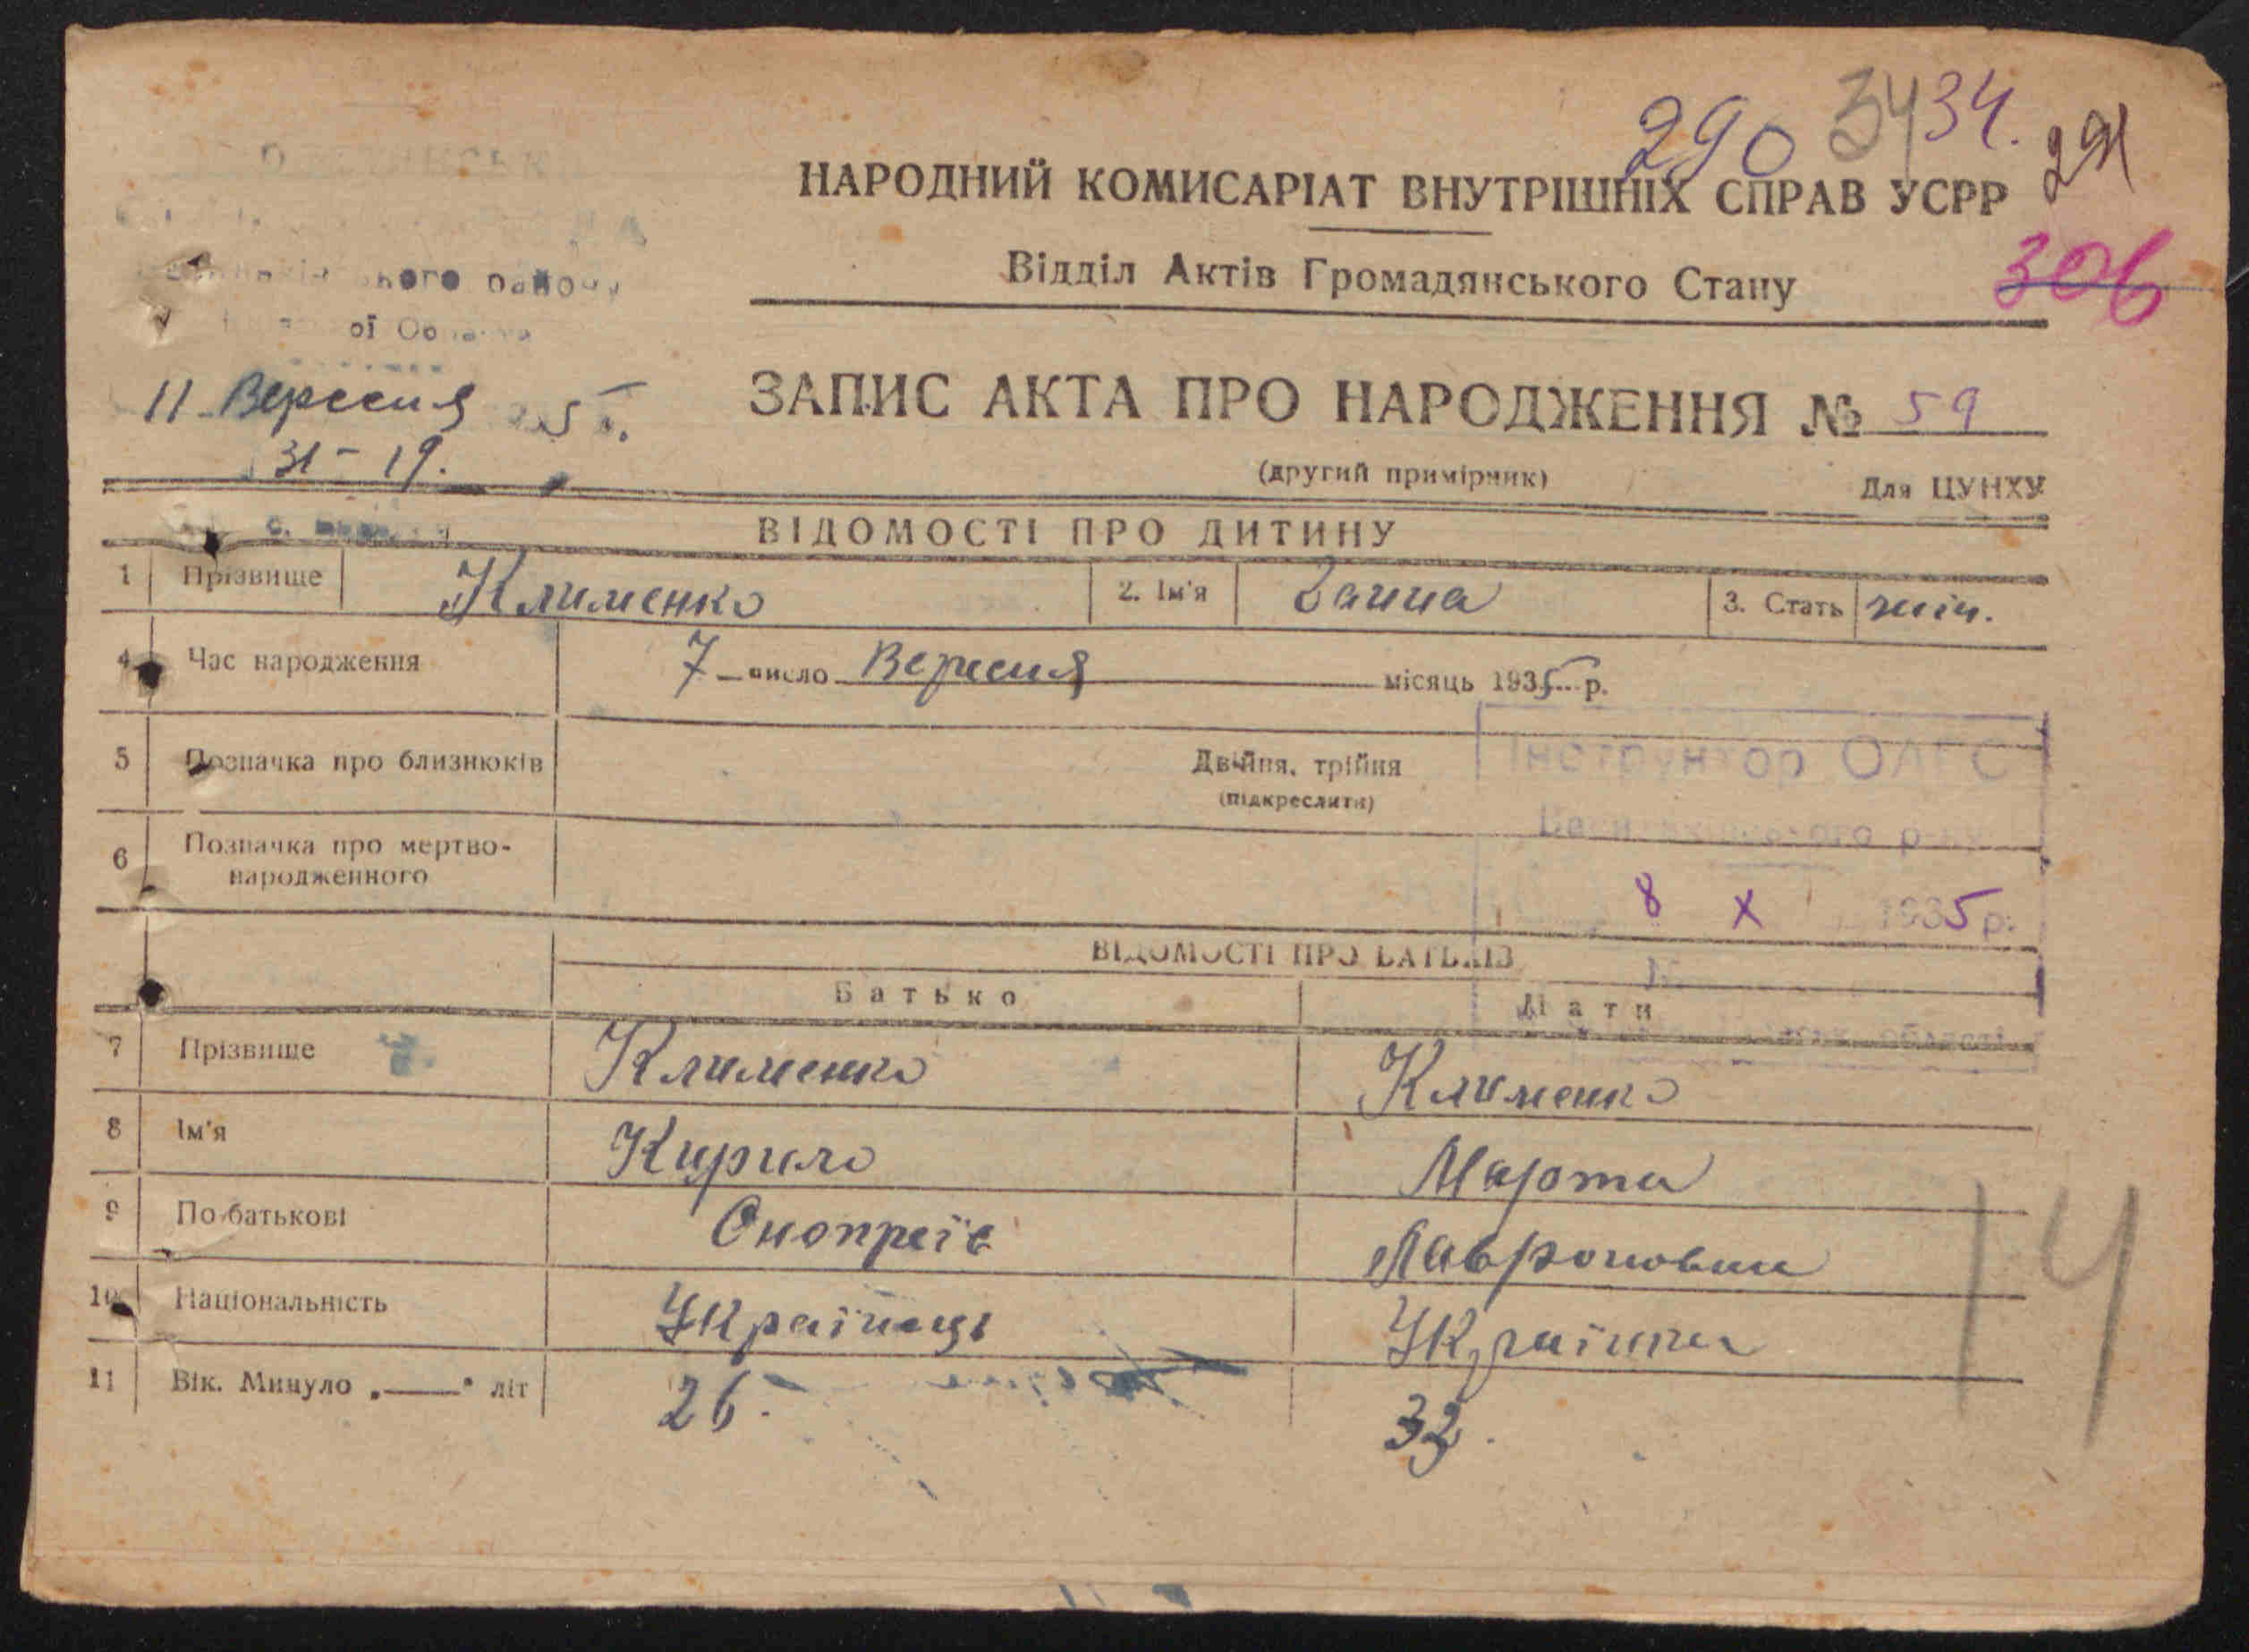 290 34 34.
291
НАРОДНИЙ КОМИСАРІАТ ВНУТРІШНІХ СПРАВ УСРР
306
Відділ Актів Громадянського Стану
району
ої
11 Вересня 5
31 – 19.
ЗАПИС АКТА ПРО НАРОДЖЕННЯ № 59
(другий примірник)
Для ЦУНХУ
с.
ВІДОМОСТІ ПРО ДИТИНУ
1 Прізвище Клименко 2. Ім'я Ганна 3. Стать жін.
4 Час народження 7 число Вересня місяць 1935 р.
5 Позначка про близнюків Двійня, трійня
(підкреслити)
Інструктор ОАГС
6 Позначка про мертво-
народженного
8 X 1935 р.
ВІДОМОСТІ ПРО БАТЬКІВ
Батько Мати
області
7 Прізвище Клименко Клименко
8 Ім'я Кирило Марта
9 По батькові Онопреїв
10 Національність Українці Українка
11 Вік. Минуло „——" літ 26. 32.
14